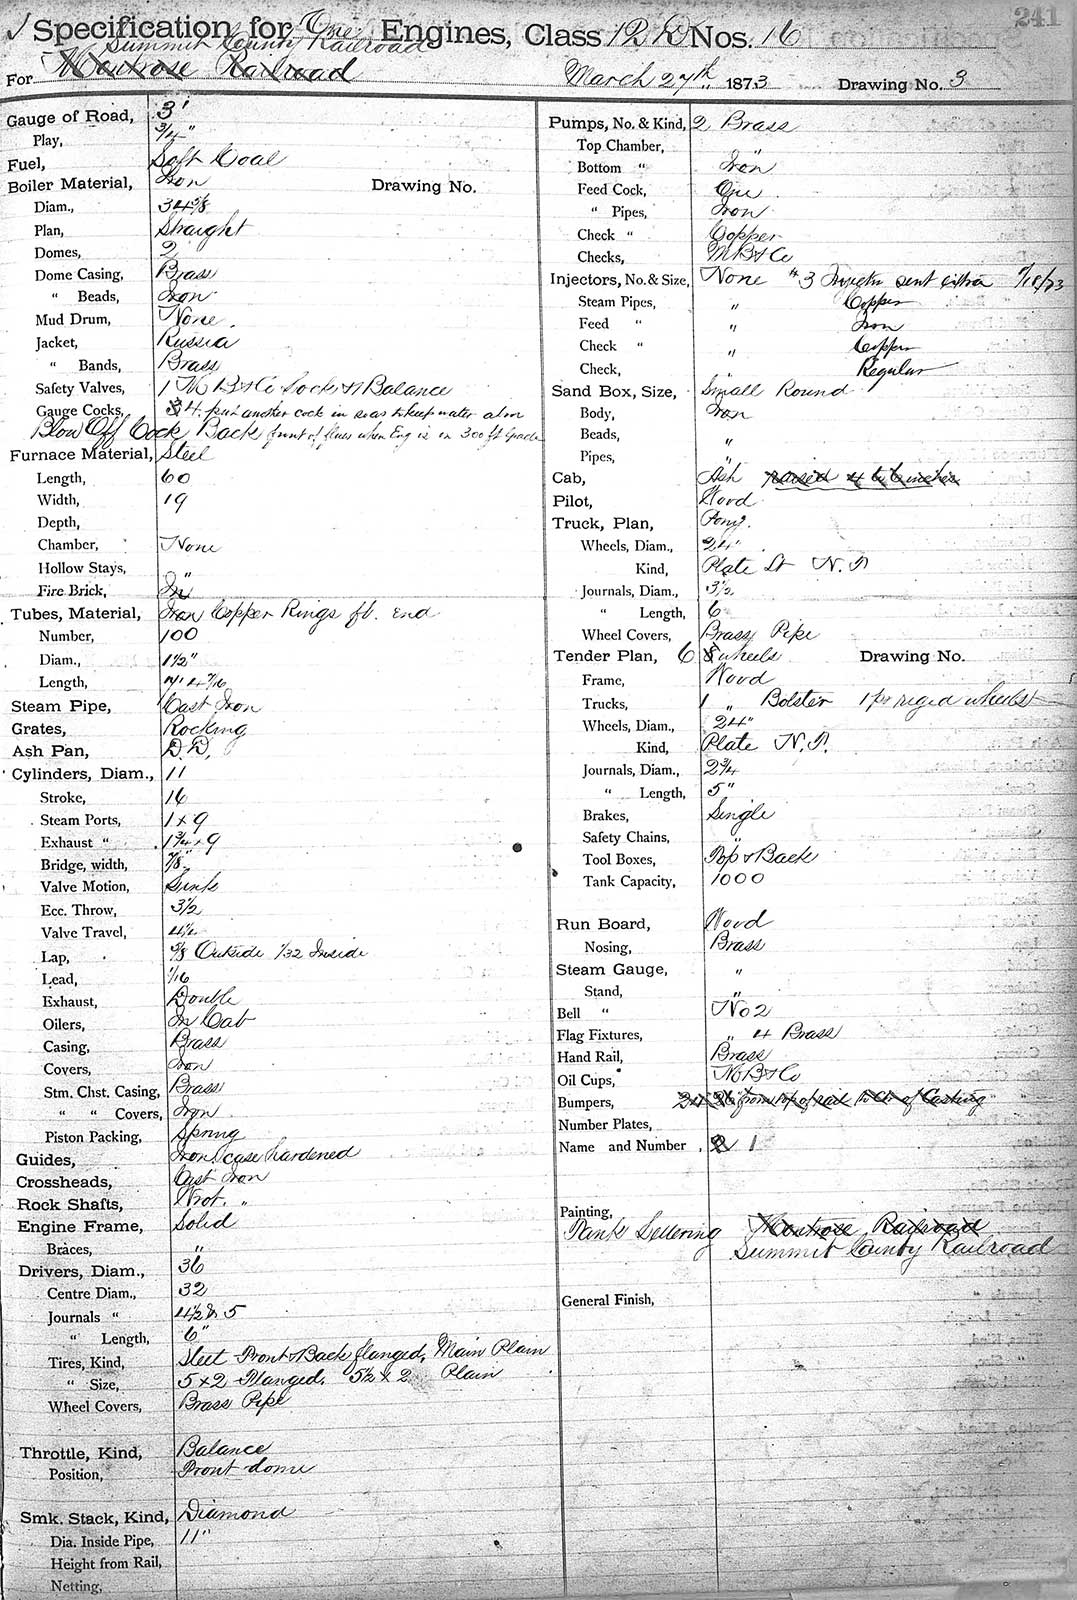 241
Specification for One Engines, Class 12 D Nos. 16
Summit County Railroad
For Montrose Railroad March 27th 1873 Drawing No. 3
Gauge of Road, 3'
Play, 3/4"
Fuel, Soft Coal
Boiler Material, Iron Drawing No.
Diam., 34 5/8
Plan, Straight
Domes, 2
Dome Casing, Brass
" Beads, Iron
Mud Drum, None
Jacket, Russia
" Bands, Brass
Safety Valves, 1 M B & Co Lock & 1 Balance
Gauge Cocks, 4. put another cock in so as to keep water
Blow Off Cock Back front of flues when Eng is on 300 ft Grade
Furnace Material, Steel
Length, 60
Width, 19
Depth,
Chamber, None
Hollow Stays, "
Fire Brick,
Tubes, Material, Iron Copper Rings ft. end
Number, 100
Diam., 1 1/2"
Length,
Steam Pipe, Cast Iron
Grates, Rocking
Ash Pan, D.D.
Cylinders, Diam., 11
Stroke, 16
Steam Ports, 1 x 9
Exhaust " 1 3/4 x 9
Bridge, width, 7/8"
Valve Motion, Link
Ecc. Throw, 3 1/2
Valve Travel,
Lap, 5/8 Outside 1/32 Inside
Lead, 1/16
Exhaust, Double
Oilers, In Cab
Casing, Brass
Covers, Iron
Stm. Chst. Casing, Brass
" " Covers, Iron
Piston Packing, Spring
Guides, Iron case hardened
Crossheads, Cast Iron
Rock Shafts, Wrot. "
Engine Frame, Solid
Braces, "
Drivers, Diam., 36
Centre Diam., 32
Journals " 4 1/2 & 5
" Length, 6"
Tires, Kind, Steel Front & Back flanged, Main Plain
" Size, 5 x 2 Flanged. 5 1/2 x 2 Plain
Wheel Covers, Brass Pipe
Throttle, Kind, Balance
Position, Front dome
Smk. Stack, Kind, Diamond
Dia. Inside Pipe, 11"
Height from Rail,
Netting,
Pumps, No. & Kind, 2 Brass
Top Chamber, "
Bottom " Iron
Feed Cock, One
" Pipes, Iron
Check " Copper
Checks, M B & Co
Injectors, No. & Size, None # 3 Injector sent extra
Steam Pipes, " Copper
Feed " " Iron
Check " " Copper
Check, " Regular
Sand Box, Size, Small Round
Body, Iron
Beads, "
Pipes, "
Cab, Ash raised 4 to 6 inches
Pilot, Wood
Truck, Plan, Pony.
Wheels, Diam., 24"
Kind, Plate St N. P
Journals, Diam., 3 1/2
" Length, 6
Wheel Covers, Brass Pipe
Tender Plan, 6 8 wheels Drawing No.
Frame, Wood
Trucks, 1 " Bolster 1 pr rigid wheels
Wheels, Diam., 24"
Kind, Plate N. P.
Journals, Diam., 2 3/4
" Length, 5"
Brakes, Single
Safety Chains, "
Tool Boxes, Top & Back
Tank Capacity, 1000
Run Board, Wood
Nosing, Brass
Steam Gauge, "
Stand, "
Bell " No 2
Flag Fixtures, " 4 Brass
Hand Rail, Brass
Oil Cups, M B & Co
Bumpers, 24 26" from top of rail to C. of Casting
Number Plates,
Name and Number 2 1
Painting,
Tank Lettering Montrose Railroad
Summit County Railroad
General Finish,